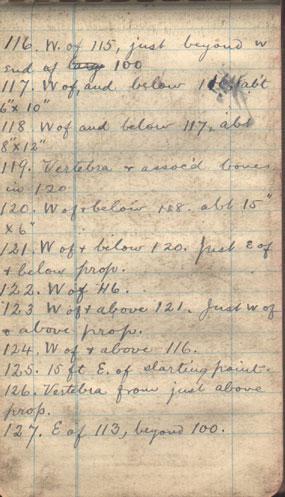 116. W. of 115, just beyond w
end of 100
117. W of, and below 116, abt
6" x 10"
118 W of and below 117, abt
8"x12"
119. Vertebra & assoc'd bones
in 120
120. W of & below 188. abt 15"
x 6"
121. W of & below 120. Just E of
& below prop.
122. W of 46.
123 W of & above 121. Just W of
& above prop.
124. W of & above 116.
125. 15 ft E. of starting point.
126. Vertebra from just above
prop.
127. E of 113, beyond 100.